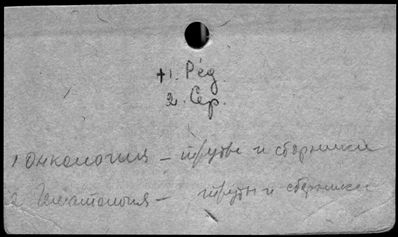 +1. Ред
2. Сер.
1 Онкология – труды и сборники
2 Гематология – труды и сборники